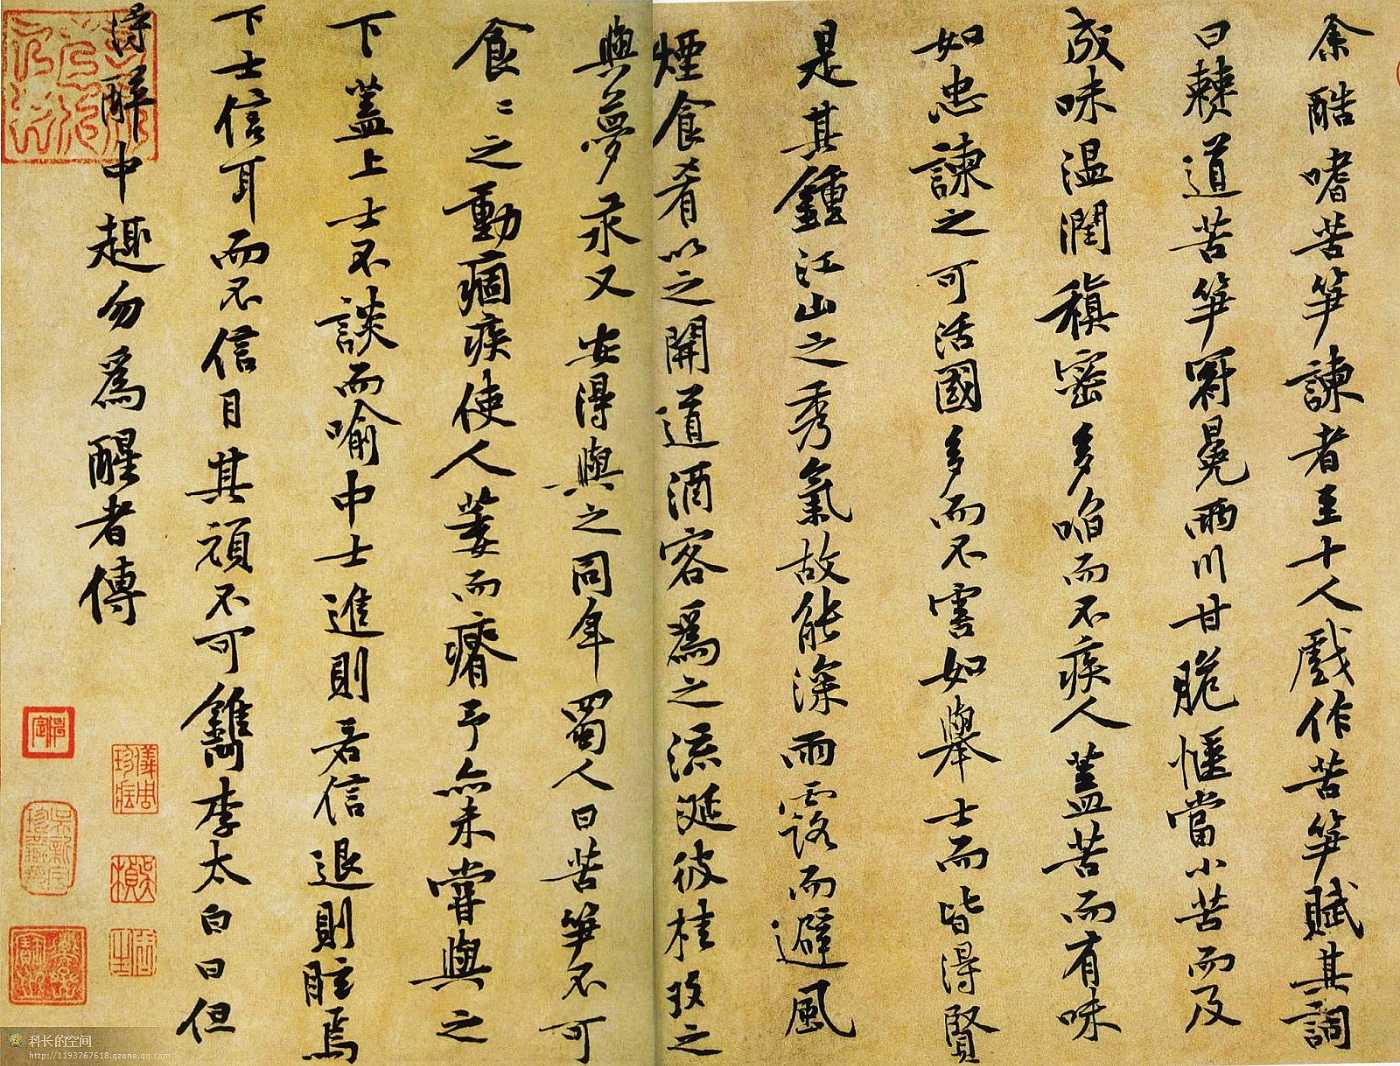 余酷嗜苦笋諫者至十人戲作苦笋賦其詞
曰棘道苦笋冠冕兩川甘脆愜當小苦而及
成味溫潤稹密多啗而不疾人蓋苦而有味
如忠諫之可活國多而不害如舉士而皆得賢
是其鍾江山之秀氣故能深雨露而避風
煙食肴以之開道酒客爲之流涎彼桂玫之
與夢永又安得與之同年蜀人曰苦笋不可
食〻之動痼疾使人萎而瘠予亦未嘗與之
下蓋上士不談而喻中士進則若信退則眩焉
下士信耳而不信目其頑不可鐫李太白曰但
得醉中趣勿爲醒者傳
科长的空间
http://1193767618.qzone.qq.com